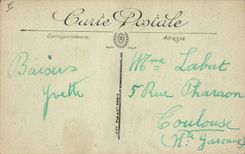 II
Carte Postale
Correspondance
Adresse
Baisers
Yvette
Mme Labat
5 Rue Pharaon
Toulouse
(Hte Garonne)